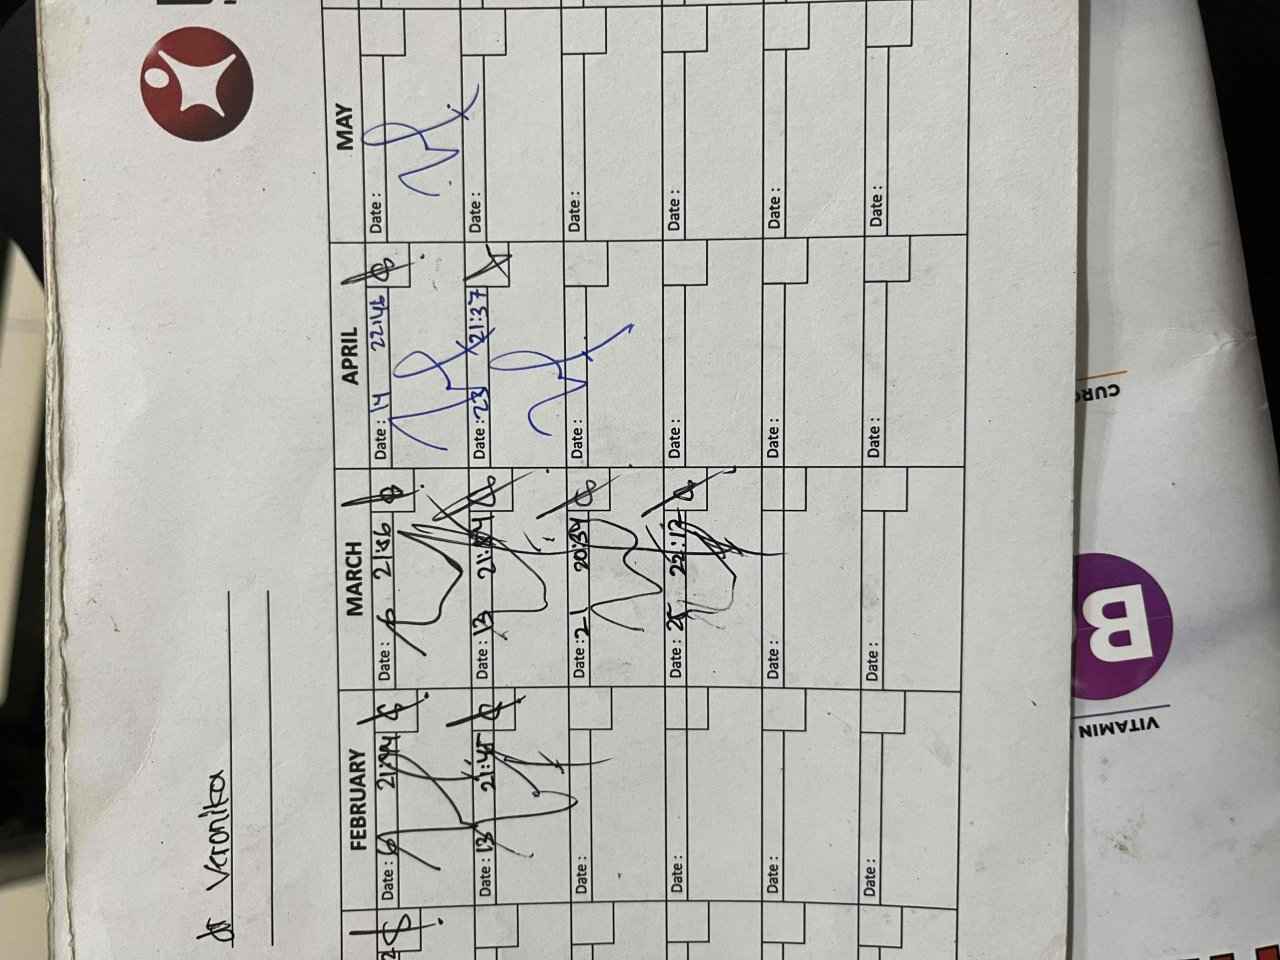 dr Veronika
FEBRUARY
Date : 6 21:44
Date : 13 21:45
Date :
Date :
Date :
Date :
MARCH
Date : 21:56
Date : 13
Date : 21 20:34
Date : 25 22:12
Date :
Date :
APRIL
Date : 14 22:46
Date : 23 21:37
Date :
Date :
Date :
Date :
MAY
Date :
Date :
Date :
Date :
Date :
Date :
VITAMIN
B